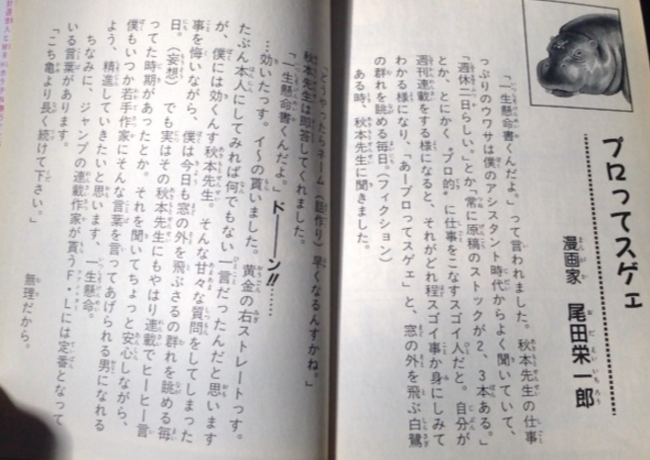 プロってスゲェ
漫画家 尾田栄一郎
「一生懸命書くんだよ。」って言われました。秋本先生の仕事
っぷりのウワサは僕のアシスタント時代からよく聞いていて、
「週休二日らしい。」とか「常に原稿のストックが2、3本ある。」
とか、とにかく〝プロ的〟に仕事をこなすスゴイ人だと。自分が
週刊連載をする様になると、それがどれ程スゴイ事か身にしみて
わかる様になり、「あープロってスゲェ」と、窓の外を飛ぶ白鷺
の群れを眺める毎日。(フィクション)
ある時、秋本先生に聞きました。
「どうやったらネーム(話作り)早くなるんすかね。」
秋本先生は即答してくれました。
「一生懸命書くんだよ。」ドーーン!!
…効いたっす。イ〜の貰いました。黄金の右ストレートっす。
たぶん本人にしてみれば何でもない一言だったんだと思います
が、僕には効くんす秋本先生。そんな甘々な質問をしてしまった
事を悔いながら、僕は今日も窓の外を飛ぶさるの群れを眺める毎
日。(妄想) でも実はその秋本先生にもやはり連載でヒーヒー言
ってた時期があったとか。それを聞いてちょっと安心しながら、
僕もいつか若手作家にそんな言葉を言ってあげられる男になれる
よう、精進していきたいと思います、一生懸命。
ちなみに、ジャンプの連載作家が貰うF・Lには定番となって
いる言葉があります。
「こち亀より長く続けて下さい。」
無理だから。